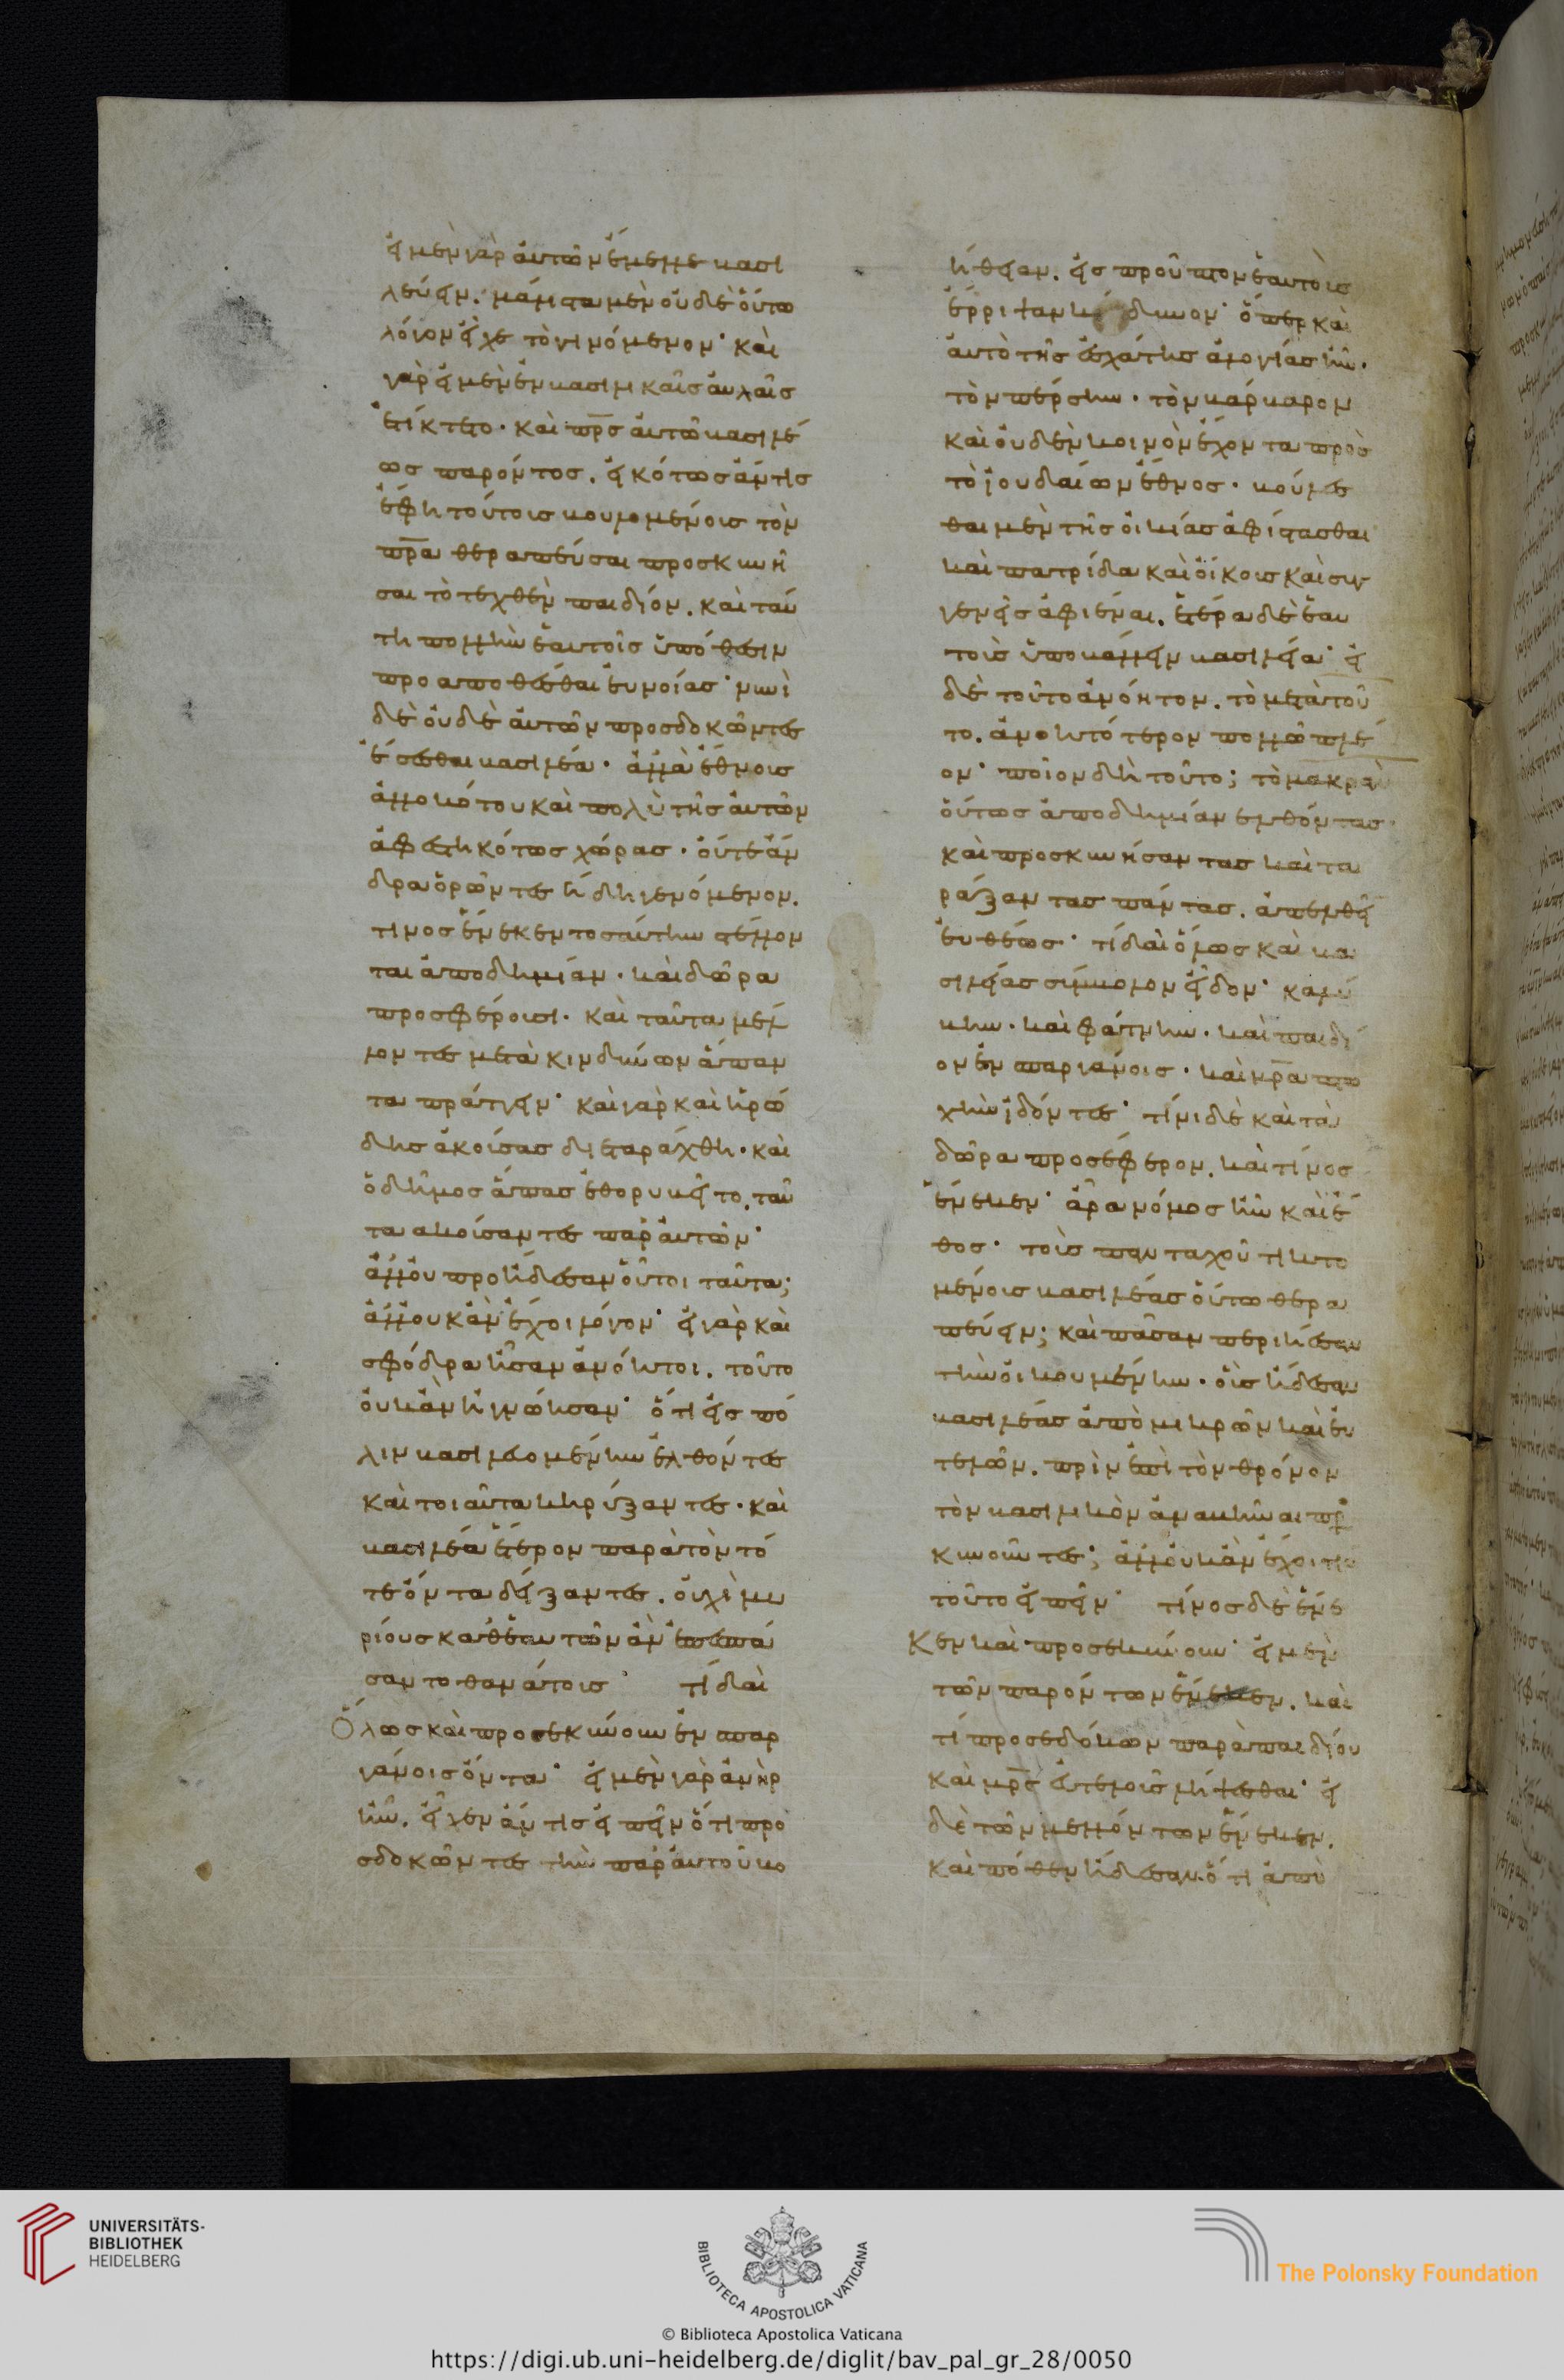 εἰ μὲν γὰρ αὐτῶν ἔμελλε βασι
λεύειν. μάλιστα μὲν οὐδὲ οὕτω
λόγον εἶχε τὸ γινόμενον· καὶ
γὰρ εἰ μὲν ἐν βασιλικαῖς αὐλαῖς
ἐτίκτετο· καὶ πρ̅ς αὐτῶ βασιλέ
ως παρόντος. εἰκότως ἄν τις
ἔφη τούτοις βουλομένοις τὸν
πρ̅α θεραπεῦσαι προσκυνῆ
σαι τὸ τεχθὲν παιδίον. καὶ ταύ
τη πολλὴν ἑαυτοῖς ὑπόθεσιν
προαποθέσθαι εὐνοίας· νυνὶ
δὲ οὐδὲ αὐτῶν προσδοκῶντες
ἔσεσθαι βασιλέα· ἀλλὰ ἔθνους
ἀλλοκότου καὶ πολὺ τῆς αὐτῶν
ἀφεστηκότως χώρας· οὔτε ἄν
δρα ὁρῶντες ἤδη γενόμενον.
τίνος ἕνεκεν τοσαύτην στέλλον
ται ἀποδημίαν· καὶ δῶρα
προσφέρουσι· καὶ ταῦτα μέλ
λοντες μετὰ κινδύνων ἅπαν
τα πράττειν· καὶ γὰρ καὶ ἡρώ
δης ἀκούσας διεταράχθη· καὶ
ὁ δῆμος ἅπας ἐθορυβεῖτο. ταῦ
τα ἀκούσαντες παρ' αὐτῶν·
ἀλλ' οὐ προήδεσαν οὗτοι ταῦτα;
ἀλλ' οὐκ ἂν ἔχοι λόγον· εἰ γὰρ καὶ
σφόδρα ἦσαν ἀνόητοι. τοῦτο
οὐκ ἂν ἠγνώησαν· ὅτι εἰς πό
λιν βασιλευομένην ἐλθόντες
καὶ τοιαῦτα κηρύξαντες· καὶ
βασιλέα ἕτερον παρὰ τὸν τό
τε ὄντα δείξαντες. οὐχὶ μυ
ρίους καθ' ἑαυτῶν ἂν ἐπεσπά
σαντο θανάτους· τί δαὶ
Ὅλως καὶ προσεκύνουν ἐν σπαρ
γάνοις ὄντα· εἰ μὲν γὰρ ἀνὴρ
ἦν. εἶχεν ἄν τις εἰπεῖν ὅτι προ
σδοκῶντες τὴν παρ' αὐτοῦ βο
ήθειαν. εἰς προῦπτον ἑαυτοὺς
ἔρριψαν κίνδυνον· ὅπερ καὶ
αὐτὸ τῆς ἐσχάτης ἀλογίας ἦν·
τὸν πέρσην· τὸν βάρβαρον
καὶ οὐδὲν κοινὸν ἔχοντα πρὸς
τὸ ἰουδαίων ἔθνος· βούλεσ
θαι μὲν τῆς οἰκίας ἀφίστασθαι
καὶ πατρίδα καὶ οἴκους καὶ συγ
γενεῖς ἀφιέναι. ἑτέρα δὲ ἑαυ
τοὺς ὑποβάλλειν βασιλεία· εἰ
δὲ τοῦτο ἀνόητον. τὸ μετὰ τοῦ
το. ἀνοητότερον πολλῶ πλέ
ον· ποῖον δὴ τοῦτο; τὸ μακρὰν
οὕτως ἀποδημίαν ἐλθόντας·
καὶ προσκυνήσαντας καὶ τα
ράξαντας πάντας. ἀπελθεῖν
εὐθέως· τί δαὶ ὅλως καὶ βα
σιλείας σύμβολον εἶδον· καλύ
βην· καὶ φάτνην· καὶ παιδί
ον ἐν σπαργάνοις· καὶ μρ̅α πτω
χὴν ἰδόντες· τίνι δὲ καὶ τὰ
δῶρα προσέφερον. καὶ τίνος
ἕνεκεν· ἆρα νόμος ἦν καὶ ἔ
θος· τοὺς πανταχοῦ τικτο
μένους βασιλέας οὕτω θερα
πεύειν; καὶ πᾶσαν περιήεσαν
τὴν οἰκουμένην· οὓς ἤδεσαν
βασιλέας ἀπὸ μικρῶν καὶ εὐ
τελῶν. πρὶν ἐπὶ τὸν θρόνον
τὸν βασιλικὸν ἀναβῆναι προσ
κυνοῦντες; ἀλλ' οὐκ ἂν ἔχοι τις
τοῦτο εἰπεῖν· τίνος δὲ ἕνε
κεν καὶ προσεκύνουν· εἰ μὲν
τῶν παρόντων ἕνεκεν. καὶ
τί προσεδόκων παρὰ παιδίου
καὶ μρ̅ς εὐτελοῦς λήψεσθαι· εἰ
δὲ τῶν μελλόντων ἕνεκεν.
καὶ πόθεν ἤδεσαν. ὅτι
UNIVERSITÄTS-
BIBLIOTHEK
HEIDELBERG
BIBLIOTECA APOSTOLICA VATICANA
The Polonsky Foundation
© Biblioteca Apostolica Vaticana
https://digi.ub.uni-heidelberg.de/diglit/bav_pal_gr_28/0050